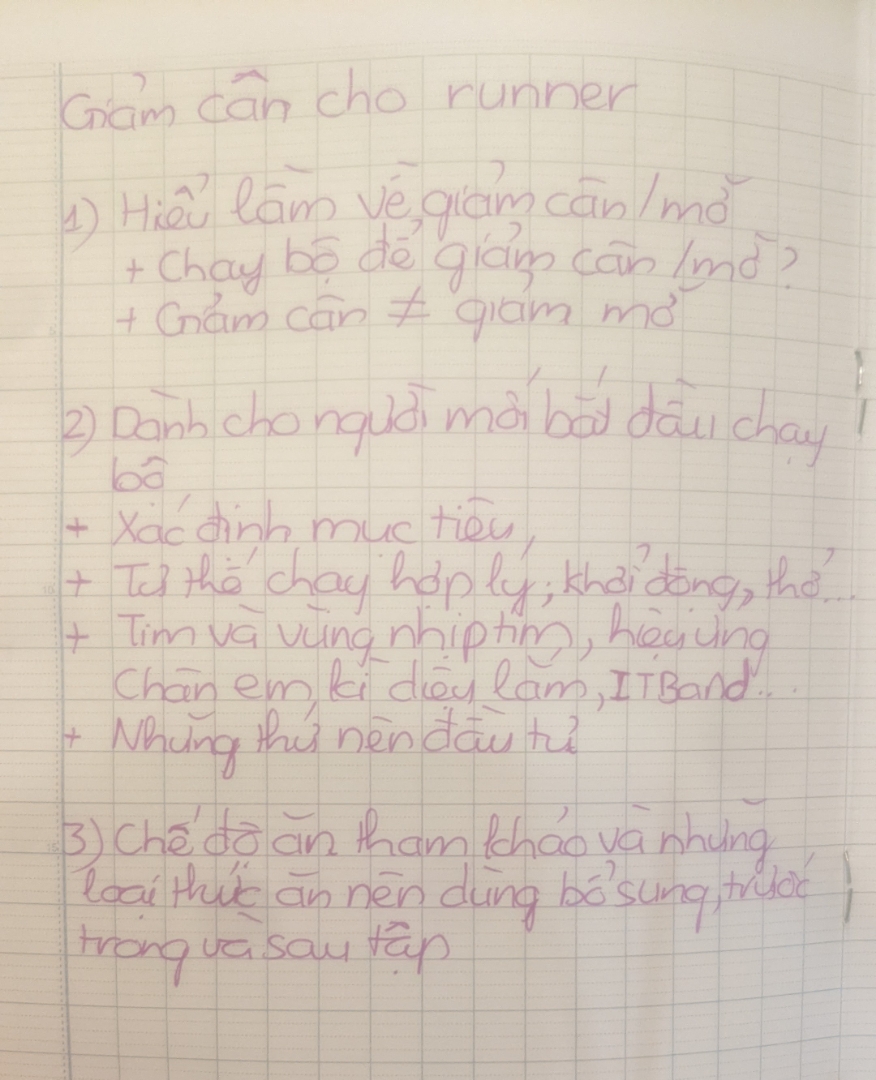 Giảm cân cho runner
1) Hiểu lầm về giảm cân/mỡ
+ Chạy bộ để giảm cân/mỡ?
+ Giảm cân ≠ giảm mỡ
2) Dành cho người mới bắt đầu chạy
bộ
+ Xác định mục tiêu,
+ Tư thế chạy hợp lý; khởi động, thở...
+ Tim và vùng nhịp tim, hiệu ứng
Chân em kì diệu lắm, ITBand...
+ Những thứ nên đầu tư
3) Chế độ ăn tham khảo và những
loại thức ăn nên dùng bổ sung, trước
trong và sau tập